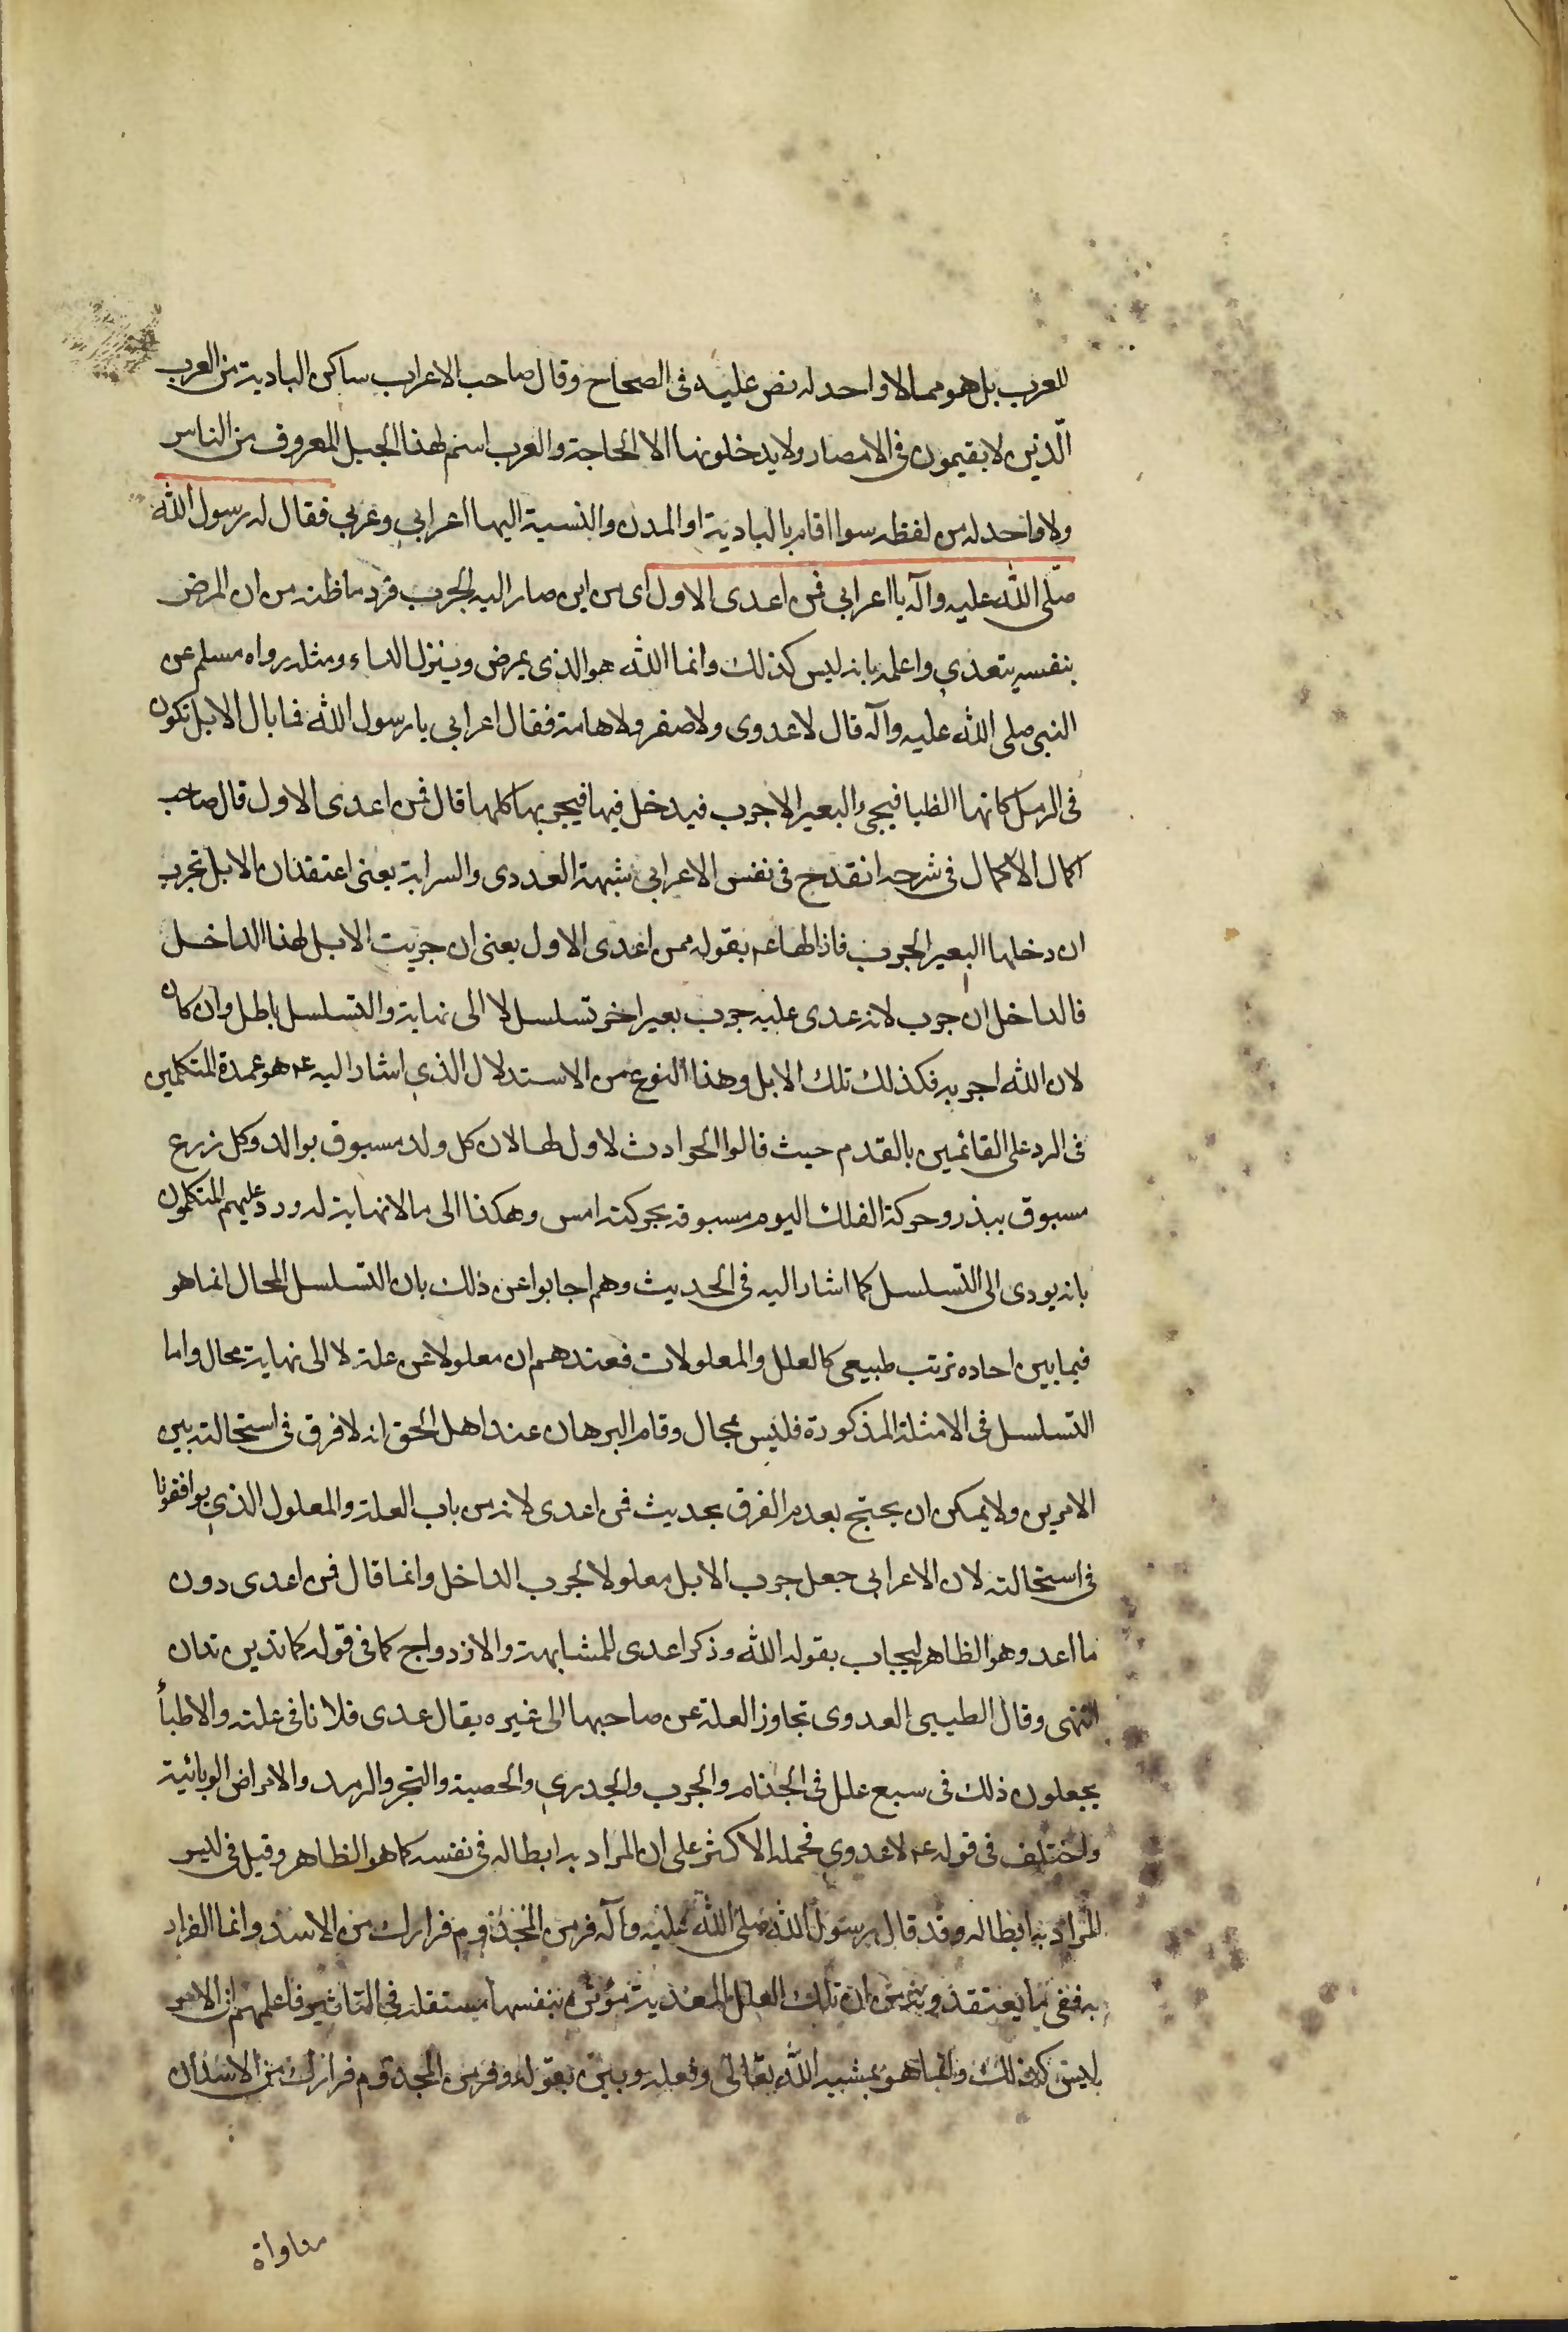 للعرب بل هو مما لا واحد له نص عليه فى الصحاح وقال صاحب الاعراب ساكن البادية من العرب
الّذين لا يقيمون فى الامصار ولا يدخلونها الا لحاجة والعرب اسم لهذا الجيل المعروف من الناس
ولا واحد له من لفظه سوا اقام بالبادية او المدن والنسبة اليها اعرابي وعربي فقال له رسول الله
صلّى الله عليه وآله يا اعرابى فمن اعدى الاول اى من اين صار اليه الجرب فرد ما ظنه من ان المرض
بنفسه يتعدي واعلمه بانه ليس كذلك وانما الله هو الذى يمرض وينزل الداء ومثله رواه مسلم عن
النبى صلى الله عليه وآله قال لا عدوى ولا صفر ولا هامة فقال اعرابى يا رسول الله فما بال الابل تكون
فى الرمل كانها الظبا فيجىء البعير الاجرب فيدخل فيها فيجربها كلها قال فمن اعدى الاول قال صاحب
اكمال الاكمال فى شرحه انقدح فى نفس الاعرابى شبهة العددى والسراية يعنى اعتقد ان الابل تجرب
ان دخلها البعير الجرب فاذالها عم بقوله ممن اعدى الاول يعنى ان جربت الابل لهذا الداخل
فالداخل ان جرب لانه عدى عليه جرب بعير اخر تسلسل لا الى نهاية والتسلسل باطل وان كان
لان الله اجربه فكذلك تلك الابل وهذا النوع من الاستدلال الذي اشار اليه عم هو عمدة المتكلمين
فى الرد على القائمين بالقدم حيث قالوا الحوادث لا اول لها لان كل ولد مسبوق بوالد وكل زرع
مسبوق ببذر وحركة الفلك اليوم مسبوقة بحركته امس وهكذا الى ما لا نهاية له ورد عليهم المتكلمون
بانه يودى الى التسلسل كما اشار اليه فى الحديث وهم اجابوا عن ذلك بان التسلسل المحال انما هو
فيما بين احاده ترتب طبيعى كالعلل والمعلولات فعندهم ان معلولا عن علة لا الى نهاية محال واما
التسلسل فى الامثلة المذكورة فليس بمحال وقام البرهان عند اهل الحق انه لا فرق فى استحالته بين
الامرين ولا يمكن ان يحتج بعدم الفرق بحديث فمن اعدى لانه من باب العلة والمعلول الذي يوافقونا
فى استحالته لان الاعرابى جعل جرب الابل معلولا لجرب الداخل وانما قال فمن اعدى دون
ما اعد وهو الظاهر ليجاب بقوله الله وذكر اعدى للمشابهة والازدواج كما فى قوله كما تدين تدان
انتهى وقال الطيبى العدوى تجاوز العلة عن صاحبها الى غيره يقال عدى فلانا فى علته والاطبأ
يجعلون ذلك فى سبع علل فى الجذام والجرب والجدري والحصبة والبخر والرمد والامراض الوبائية
واختلف فى قوله عم لا عدوي فحمله الاكثر على ان المراد به ابطاله فى نفسه كما هو الظاهر وقيل فى ليس
المراد به ابطاله وقد قال رسول الله صلى الله عليه وآله فر من المجذوم فرارك من الاسد وانما المراد
به نفى ما يعتقد ان تلك العلل المعدية مؤثرة بنفسها مستقلة فى التاثير فاعلمهم ان الامر
ليس كذلك وانما هو بمشية الله تعالى وفعله وبين بقوله وفر من المجذوم فرارك من الاسد ان
مداواة